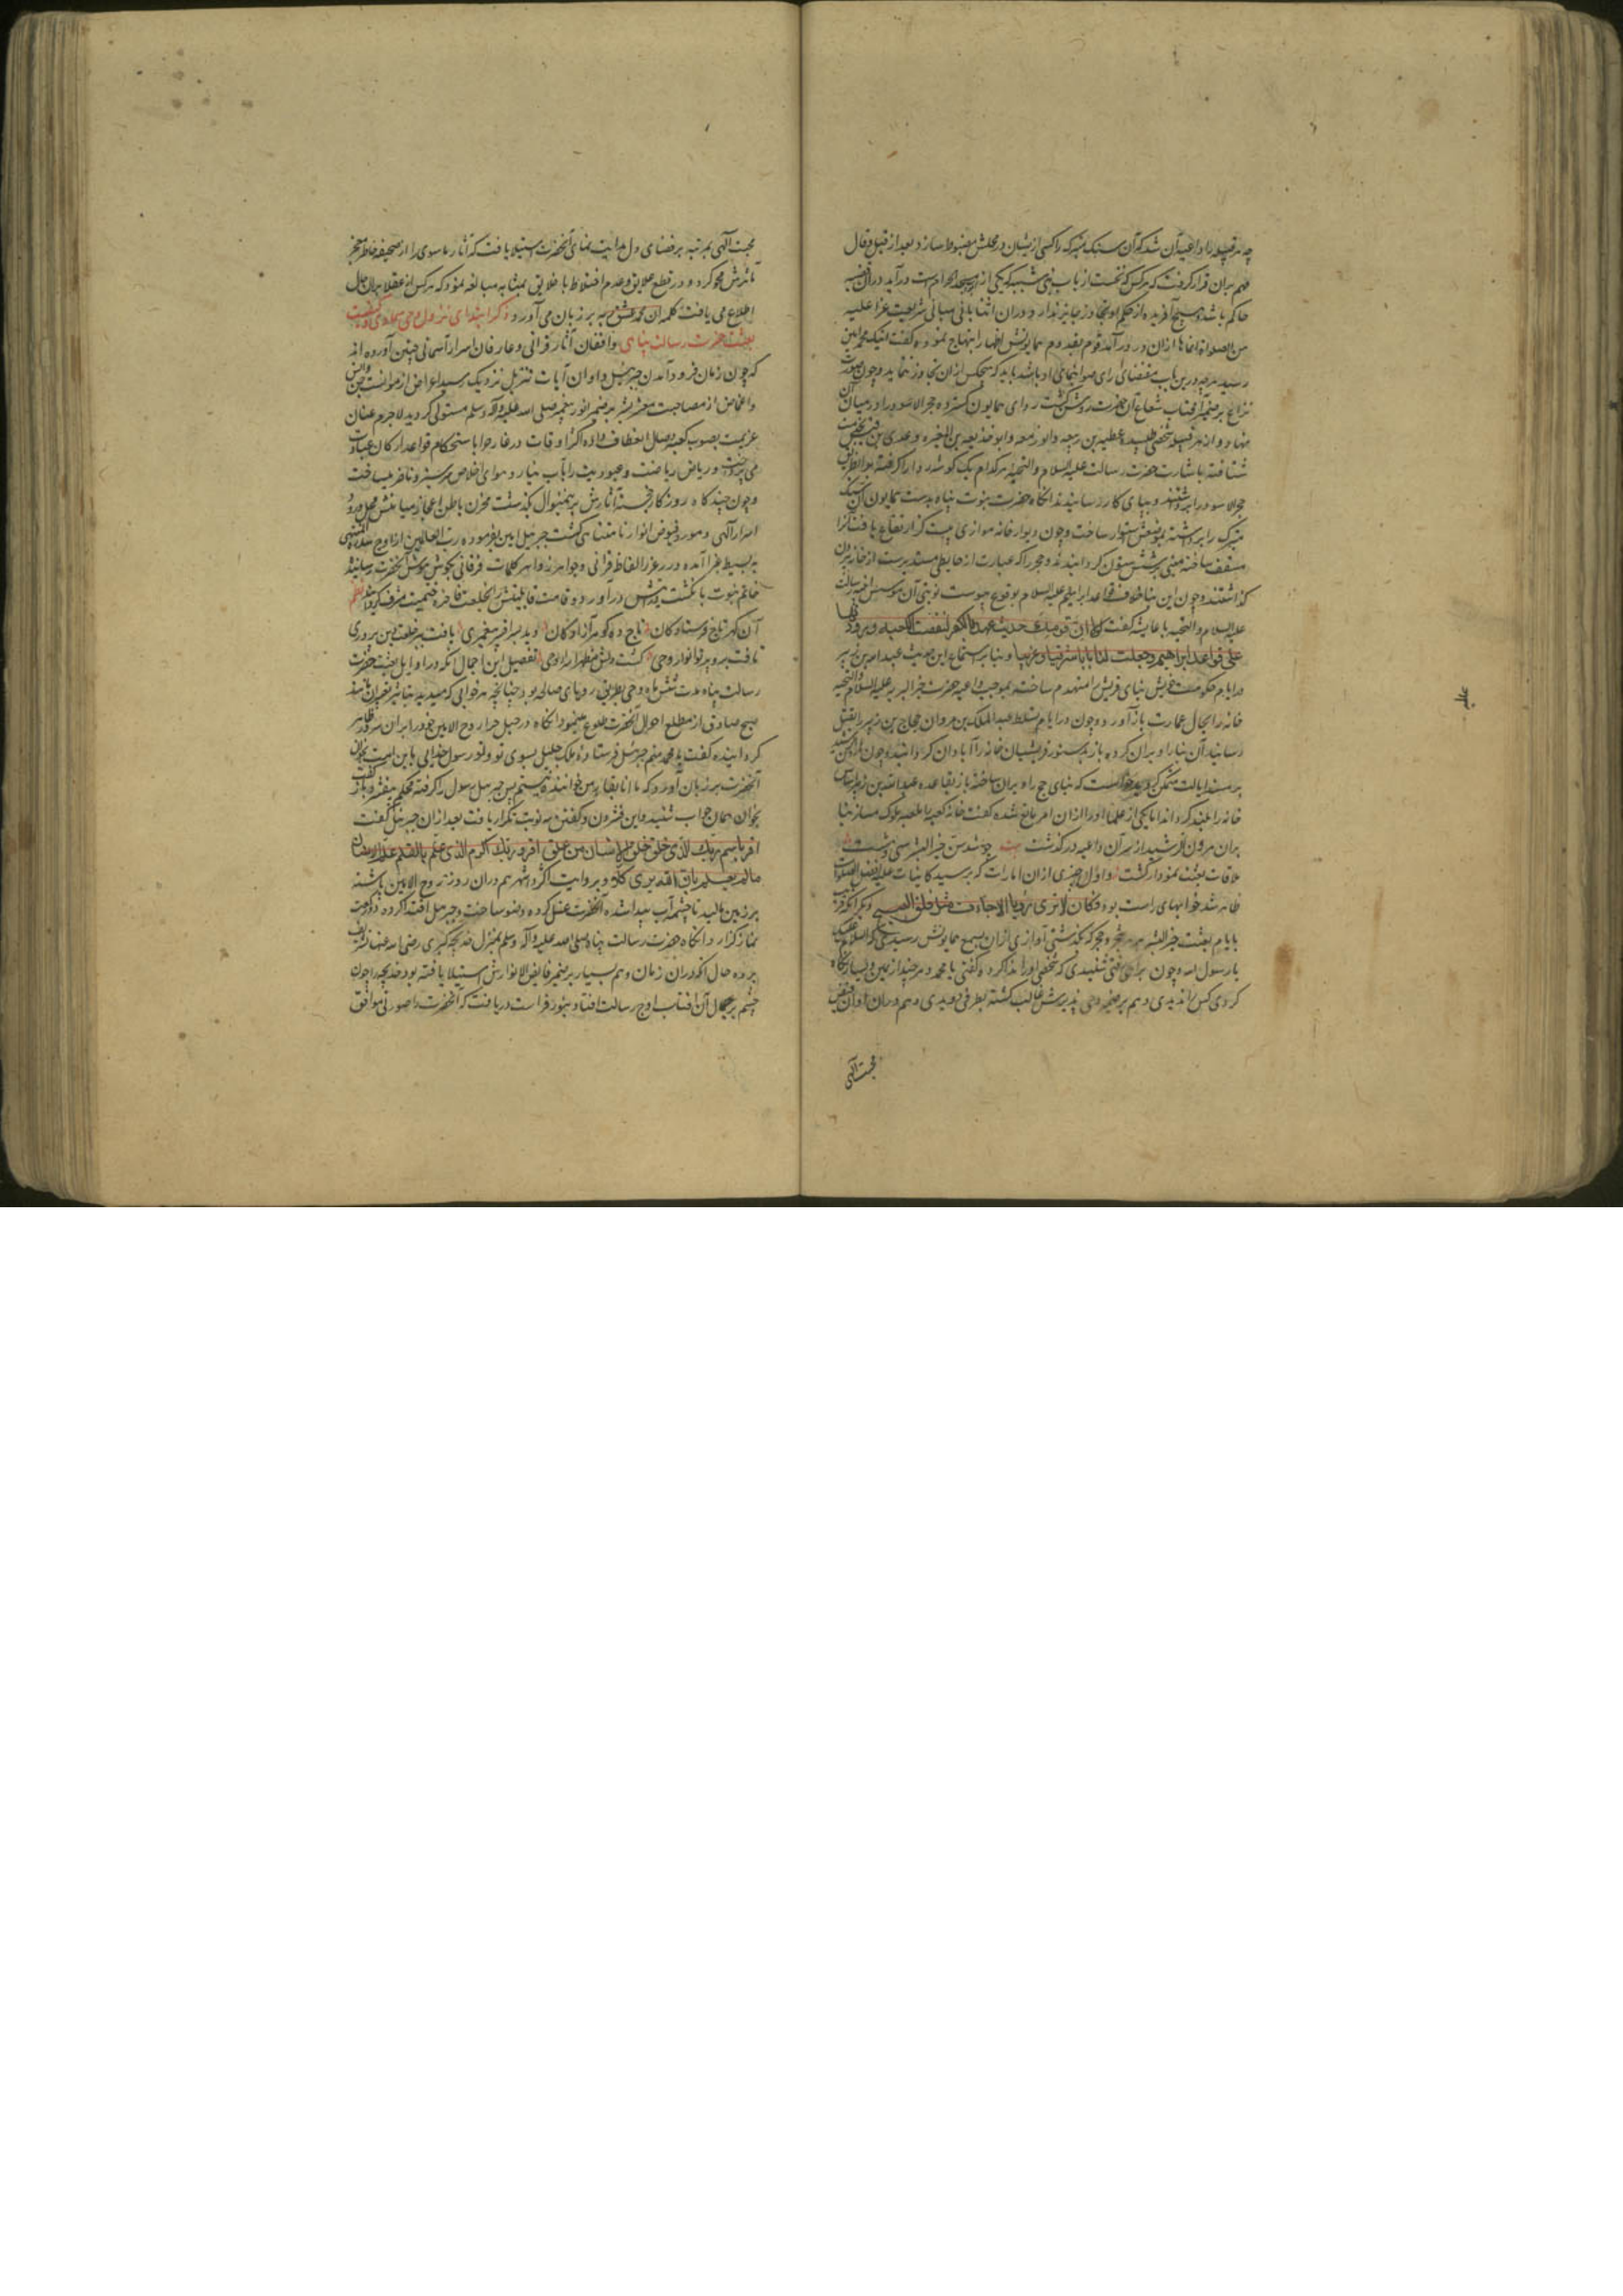 چه هر قبیله را داعیه آن شد که آن سنک متبرکه را کسی از ایشان در محلش مضبوط سازد و بعد از قیل و قال
مهم بران قرار کرفت که هر کس که نخست از باب بنی شیبه که یکی از ابواب مسجد الحرام است در آید دران قضیه
حاکم باشد و هیچ آفریده از حکم او تجاوز جایز ندارد و دران اثنا بانی مبانی شریعت غرا علیه
من الصلواة انماها ازان در در آمد قوم بقدوم همایونش اظهار ابتهاج نموده کفتند اینک محمد امین
رسید هرچه درین باب مقتضای رای صوابنمای او باشد باید که هیچکس ازان تجاوز ننماید و چون صورت
نزاع بر ضمیر آفتاب شعاع آن حضرت روشن کشت ردای همایون کسترده حجر الاسود را در میان آن
نهاد و از هر قبیله شخصی طلبیده عتبه بن ربیعه و ابو زمعه و ابو حذیفه بن المغیره و عدی بن قیس بخدمت
شتافته باشارت حضرت رسالت علیه السلام و التحیه هر کدام یک کوشه ردا را کرفته
حجر الاسود را برداشتند و بپای کار رسانیدند انکاه حضرت نبوت پناه بدست همایون آن سنک
متبرک را برداشته بموضعش استوار ساخت و چون دیوار خانه موازی بیست کز ارتفاع یافت آنرا
مسقف ساخته مبنی بر شش ستون کردانیدند و حجر را که عبارت از حایطی مستدیرست از خانه بیرون
کذاشتند و چون این بنا خلاف قواعد ابراهیم علیه السلام بوقوع پیوست نوبتی آن موسس اساس رسالت
علیه السلام و التحیه با عایشه کفت لولا ان قومک حدیث عهد بالکفر لنقضت الکعبه
علی قواعد ابراهیم و جعلت لها بابا شرقیا و غربیا و بنابر استماع این حدیث عبد الله بن زبیر
در ایام حکومت خویش بنای قریش را منهدم ساخته بموجب داعیه حضرت خیر البریه علیه السلام و التحیه
خانه را بحال عمارت باز آورد و چون در ایام تسلط عبد الملک بن مروان حجاج بن زبیر را بقتل
رسانید آن بنا را ویران کرده باز بدستور قریشیان خانه را آبادان کردانید و چون هارون رشید
بر مسند ایالت متمکن کردید خواست که بنای حجاج را ویران ساخته باز بقاعده عبد الله بن زبیر اساس
خانه را بلند کرداند اما یکی از علما او را ازان امر مانع شده کفت خانه کعبه را ملعبه ملوک مساز بنا
بران هرون الرشید از سر آن داعیه در کذشت بیت چو شد سن خیر البشر سی و هشت
علامات بعثت نمودار کشت و اول چیزی ازان امارات که بر سید کاینات علیه افضل الصلوات
ظاهر شد خوابهای راست بود فکان لا یری رؤیا الا جاءت مثل فلق الصبح دیکر آنکه قریب
بایام بعثت خیر البشر بهر شجر و حجر که بکذشتی آوازی ازان بسمع همایونش رسیدی که السلام علیک
یا رسول الله و چون براهی رفتی شنیدی که شخصی او را ندا کرد و کفتی یا محمد و هر چند از یمین و یسار نکاه
کردی کس ندیدی و هم بر ضمیر وحی پذیرش غالب کشته بطرفی دویدی و هم دران اوان
محبت آلهی
محبت آلهی بمرتبه بر فضای دل هدایت نمای آنحضرت استیلا یافت که آثار ماسوی را از صحیفه خاطر معجز
مآثرش محو کرد و در قطع علایق و عدم اختلاط با خلایق بمثابه مبالغه نمود که هر کس از عقلا بران حال
اطلاع می یافت کلمه ان محمد عشق ربه بر زبان می آورد ذکر ابتدای نزول وحی سماوی و کیفیت
بعثت حضرت رسالت پناهی واقفان آثار قرآنی و عارفان اسرار آسمانی چنین آورده اند
که چون زمان فرود آمدن جبرئیل و اوان آیات تنزیل نزدیک رسید اعراض از موانست جن و انس
و اغماض از مصاحبت معشر بشر بر ضمیر انور پیغمبر صلی الله علیه و آله و سلم مستولی کردید لاجرم عنان
عزیمت بصوب کعبه وصل انعطاف داده اکثر اوقات در غار حرا باستحکام قواعد ارکان عبادت
می پرداخت و ریاض ریاضت و عبودیت را بآب نیاز و هوای اخلاص سرسبز و ناضر میساخت
و چون چندکاه روزکار خجسته آثارش برینمنوال بکذشت مخزن باطن اعجاز میامنش محل ورود
اسرار آلهی و مورد فیوض انوار نامتناهی کشت جبرئیل امین بفرموده رب العالمین از اوج سدرة المنتهی
به بسیط غبرا آمده درر غرر الفاظ قرآنی و جواهر زواهر کلمات فرقانی بکوش هوش آنحضرت رسانید
خاتم نبوت بانکشت مبارکش درآورد و قامت قابلیتش را بخلعت فاخره ختمیت مشرف کردانید نظم
آن کهر تاج فرستادکان تاج ده کوهر آزادکان دید بسر افسر پیغمبری یافت ببر خلعت دین پروری
تافت برو پرتو انوار وحی کشت دلش مظهر اسرار وحی تفصیل این اجمال آنکه در اوایل بعثت حضرت
رسالت پناه مدت شش ماه وحی بطریق رویای صالحه بود چنانچه هر خوابی که میدید تعبیر آن مانند
صبح صادق از مطلع احوال آنحضرت طلوع مینمود انکاه در جبل حرا روح الامین خود را بر ان سرور ظاهر
کردانیده کفت یا محمد منم جبرئیل فرستاده ملک جلیل بسوی تو و تو رسول خدایی باین امت بخوان
آنحضرت بر زبان آورد که ما انا بقاری من خواننده نیستم پس جبرئیل رسول را کرفته محکم بیفشرد و باز کفت
بخوان همان جواب شنید و این فشردن و کفتن سه نوبت تکرار یافت بعد ازان جبرئیل کفت
اقرا باسم ربک الذی خلق خلق الانسان من علق اقرا و ربک الاکرم الذی علم بالقلم علم الانسان
ما لم یعلم و بروایت اکثر و اشهر هم دران روز روح الامین پاشنه
بر زمین مالید تا چشمه آب پیدا شده آنحضرت غسل کرده وضو ساخت و جبرئیل اقتدا کرده دو رکعت
نماز کزارد انکاه حضرت رسالت پناه صلی الله علیه و آله و سلم بمنزل خدیجه کبری رضی الله عنها تشریف
برده حال آنکه دران زمان وهم بسیار بر ضمیر فایض الانوارش استیلا یافته بود خدیجه را چون
چشم بر جمال آن آفتاب اوج رسالت افتاد بنور فراست دریافت که آنحضرت را صورتی موافق